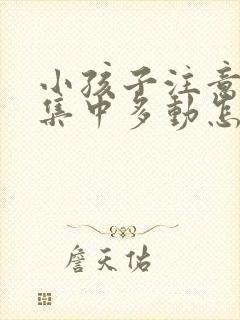 小孩子注意
集中多動怎
詹天佑